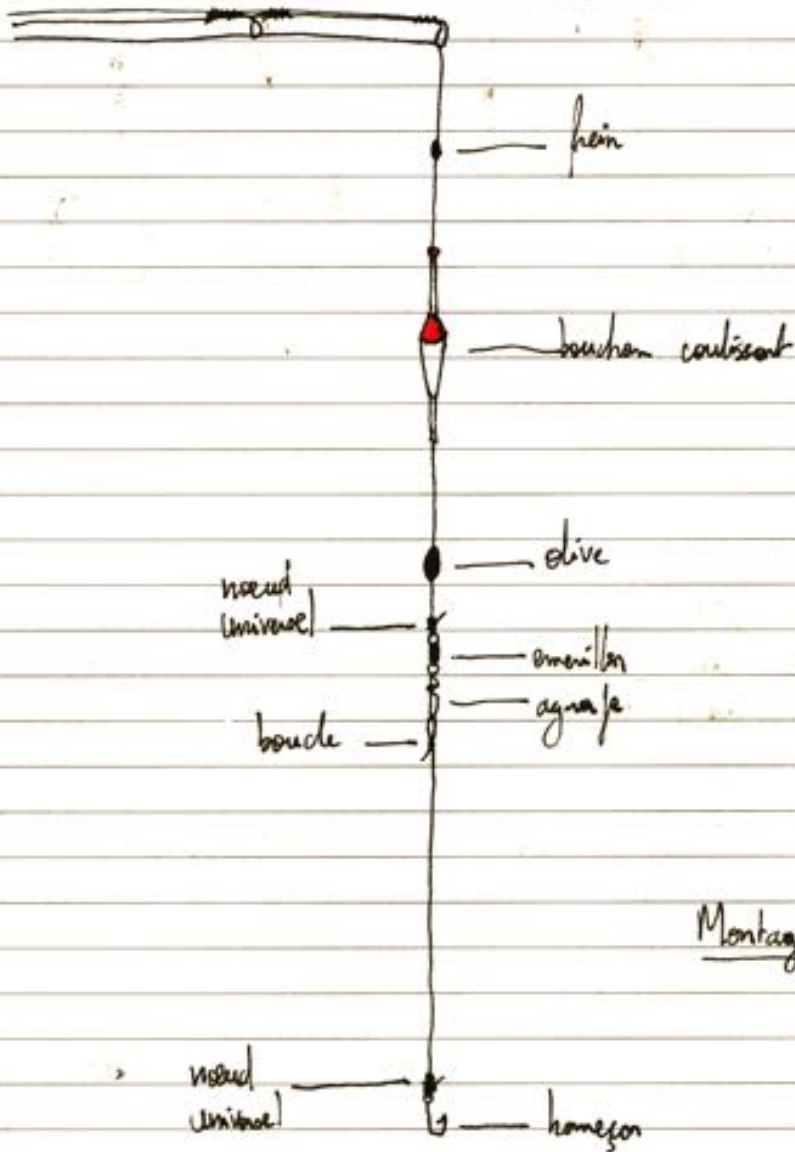 frein
bouchon coulissant
olive
noeud
universel
emerillon
agrafe
boucle
Montag
noeud
universel
hameçon